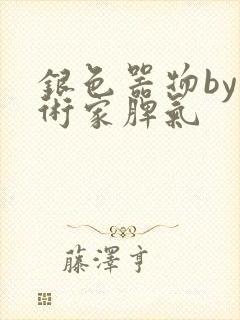 銀色器物by
術家脾氣
藤澤亨